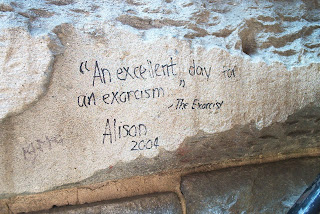 "An excellent day for
an exorcism"
-The Exorcist
Alison
2004